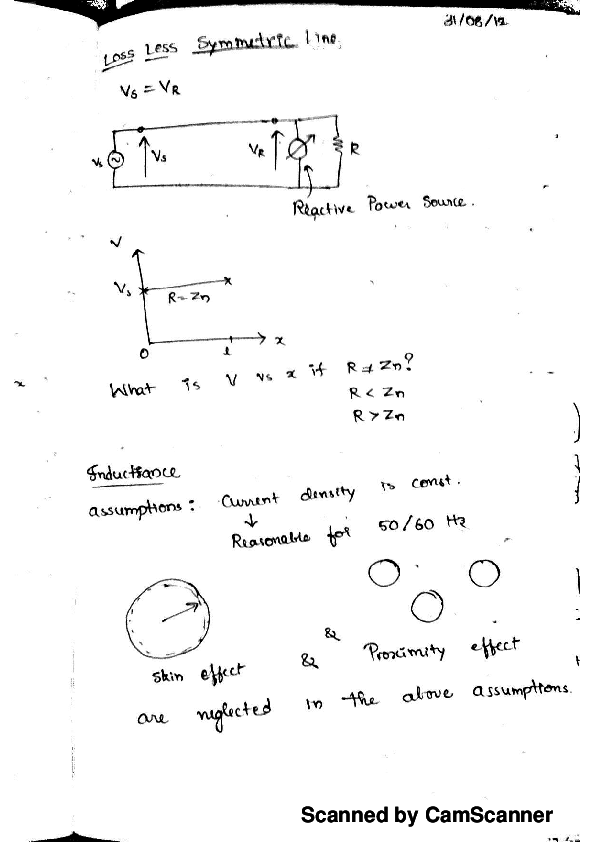 31/08/12
Loss Less Symmetric Line
Vs = VR
Vs
Vs
VR
R
Reactive Power Source.
V
Vs
R = Zn
0
l
x
What is V vs x if R ≠ Zn?
R < Zn
R > Zn
x
Inductance
assumptions: Current density is const.
Reasonable for 50/60 Hz
&
Skin effect & Proximity effect
are neglected in the above assumptions.
Scanned by CamScanner